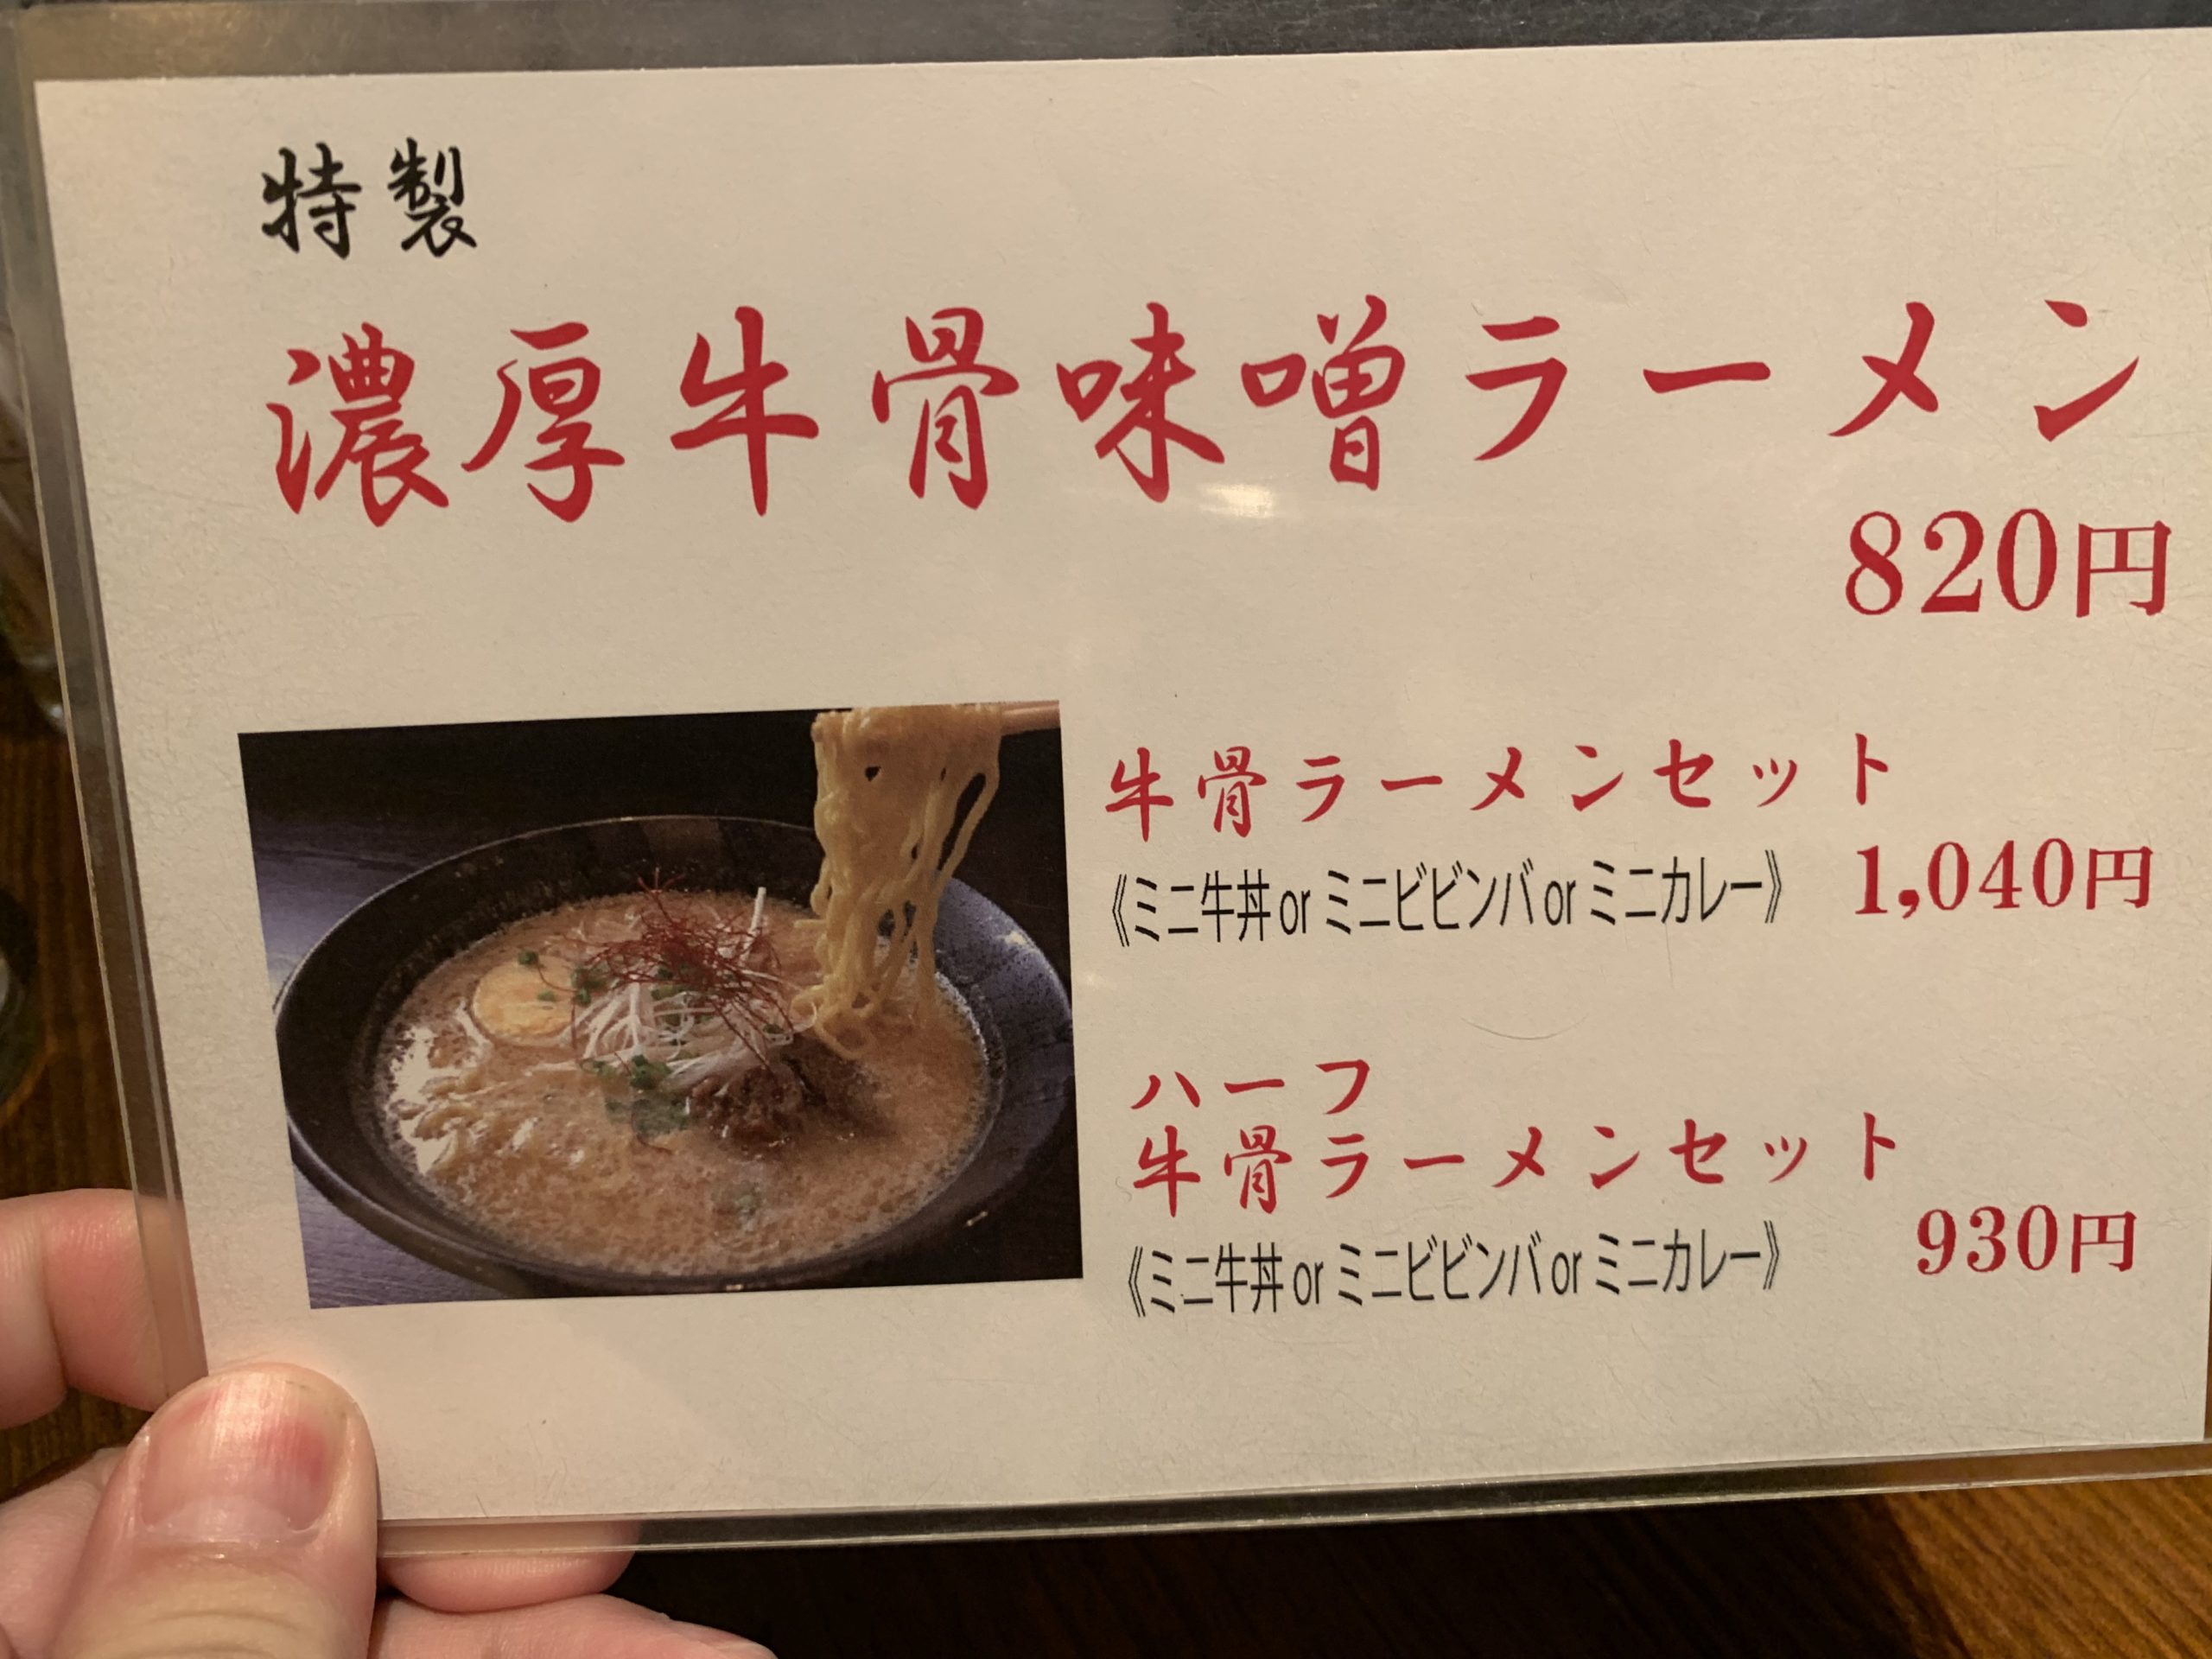 特製
濃厚牛骨味噌ラーメン
820円
牛骨ラーメンセット
《ミニ牛丼 or ミニビビンバ or ミニカレー》 1,040円
ハーフ
牛骨ラーメンセット
《ミニ牛丼 or ミニビビンバ or ミニカレー》 930円